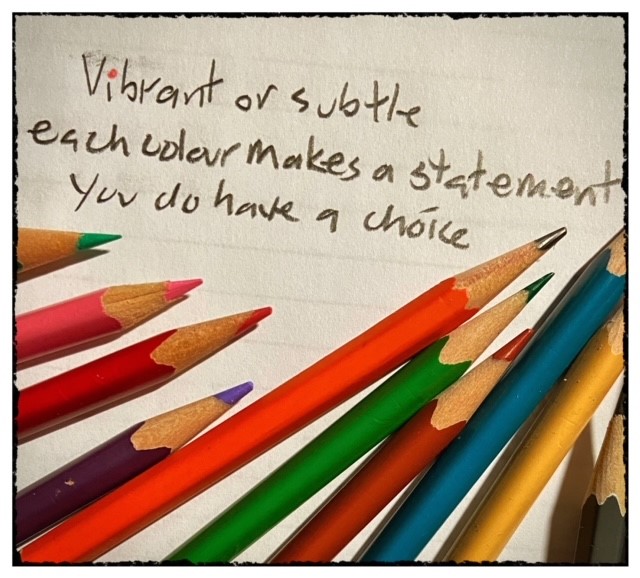 Vibrant or subtle
each colour makes a statement
You do have a choice